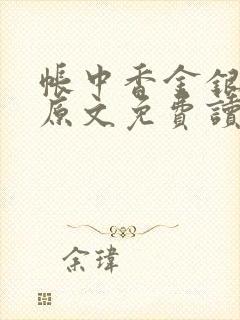 帳中香金銀
原文免費讀
余瑋